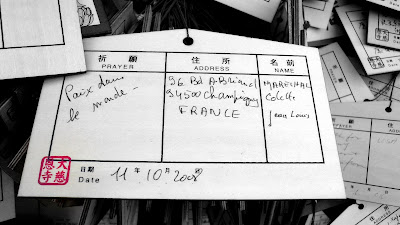 祈 願
PRAYER
住 所
ADDRESS
名 前
NAME
Paix dans
le monde -
36 Bd A. Briand
94500 Champigny
FRANCE
MARECHAL
Colette
Jean Louis
大慈
恩寺
日期
Date 11 年 10 月 2008 日